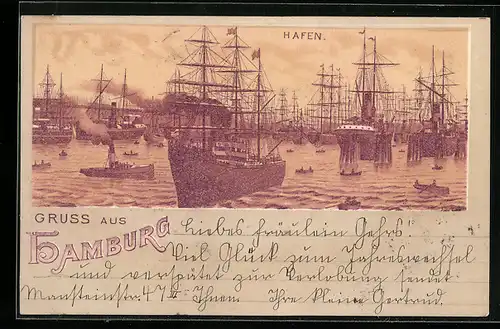 HAFEN.
GRUSS AUS
HAMBURG
Liebes Fräulein Gehrs!
Viel Glück zum Jahreswechsel
und verspätet zur Verlobung sendet
Mansteinstr. 47II Ihnen Ihre kleine Gertrud.